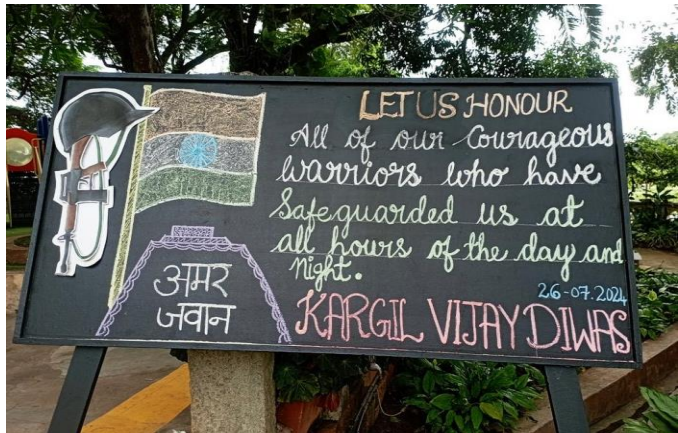 LET US HONOUR
All of our Courageous
warriors who have
Safeguarded us at
all hours of the day and
Night.
26-07.2024
KARGIL VIJAY DIWAS
अमर
जवान